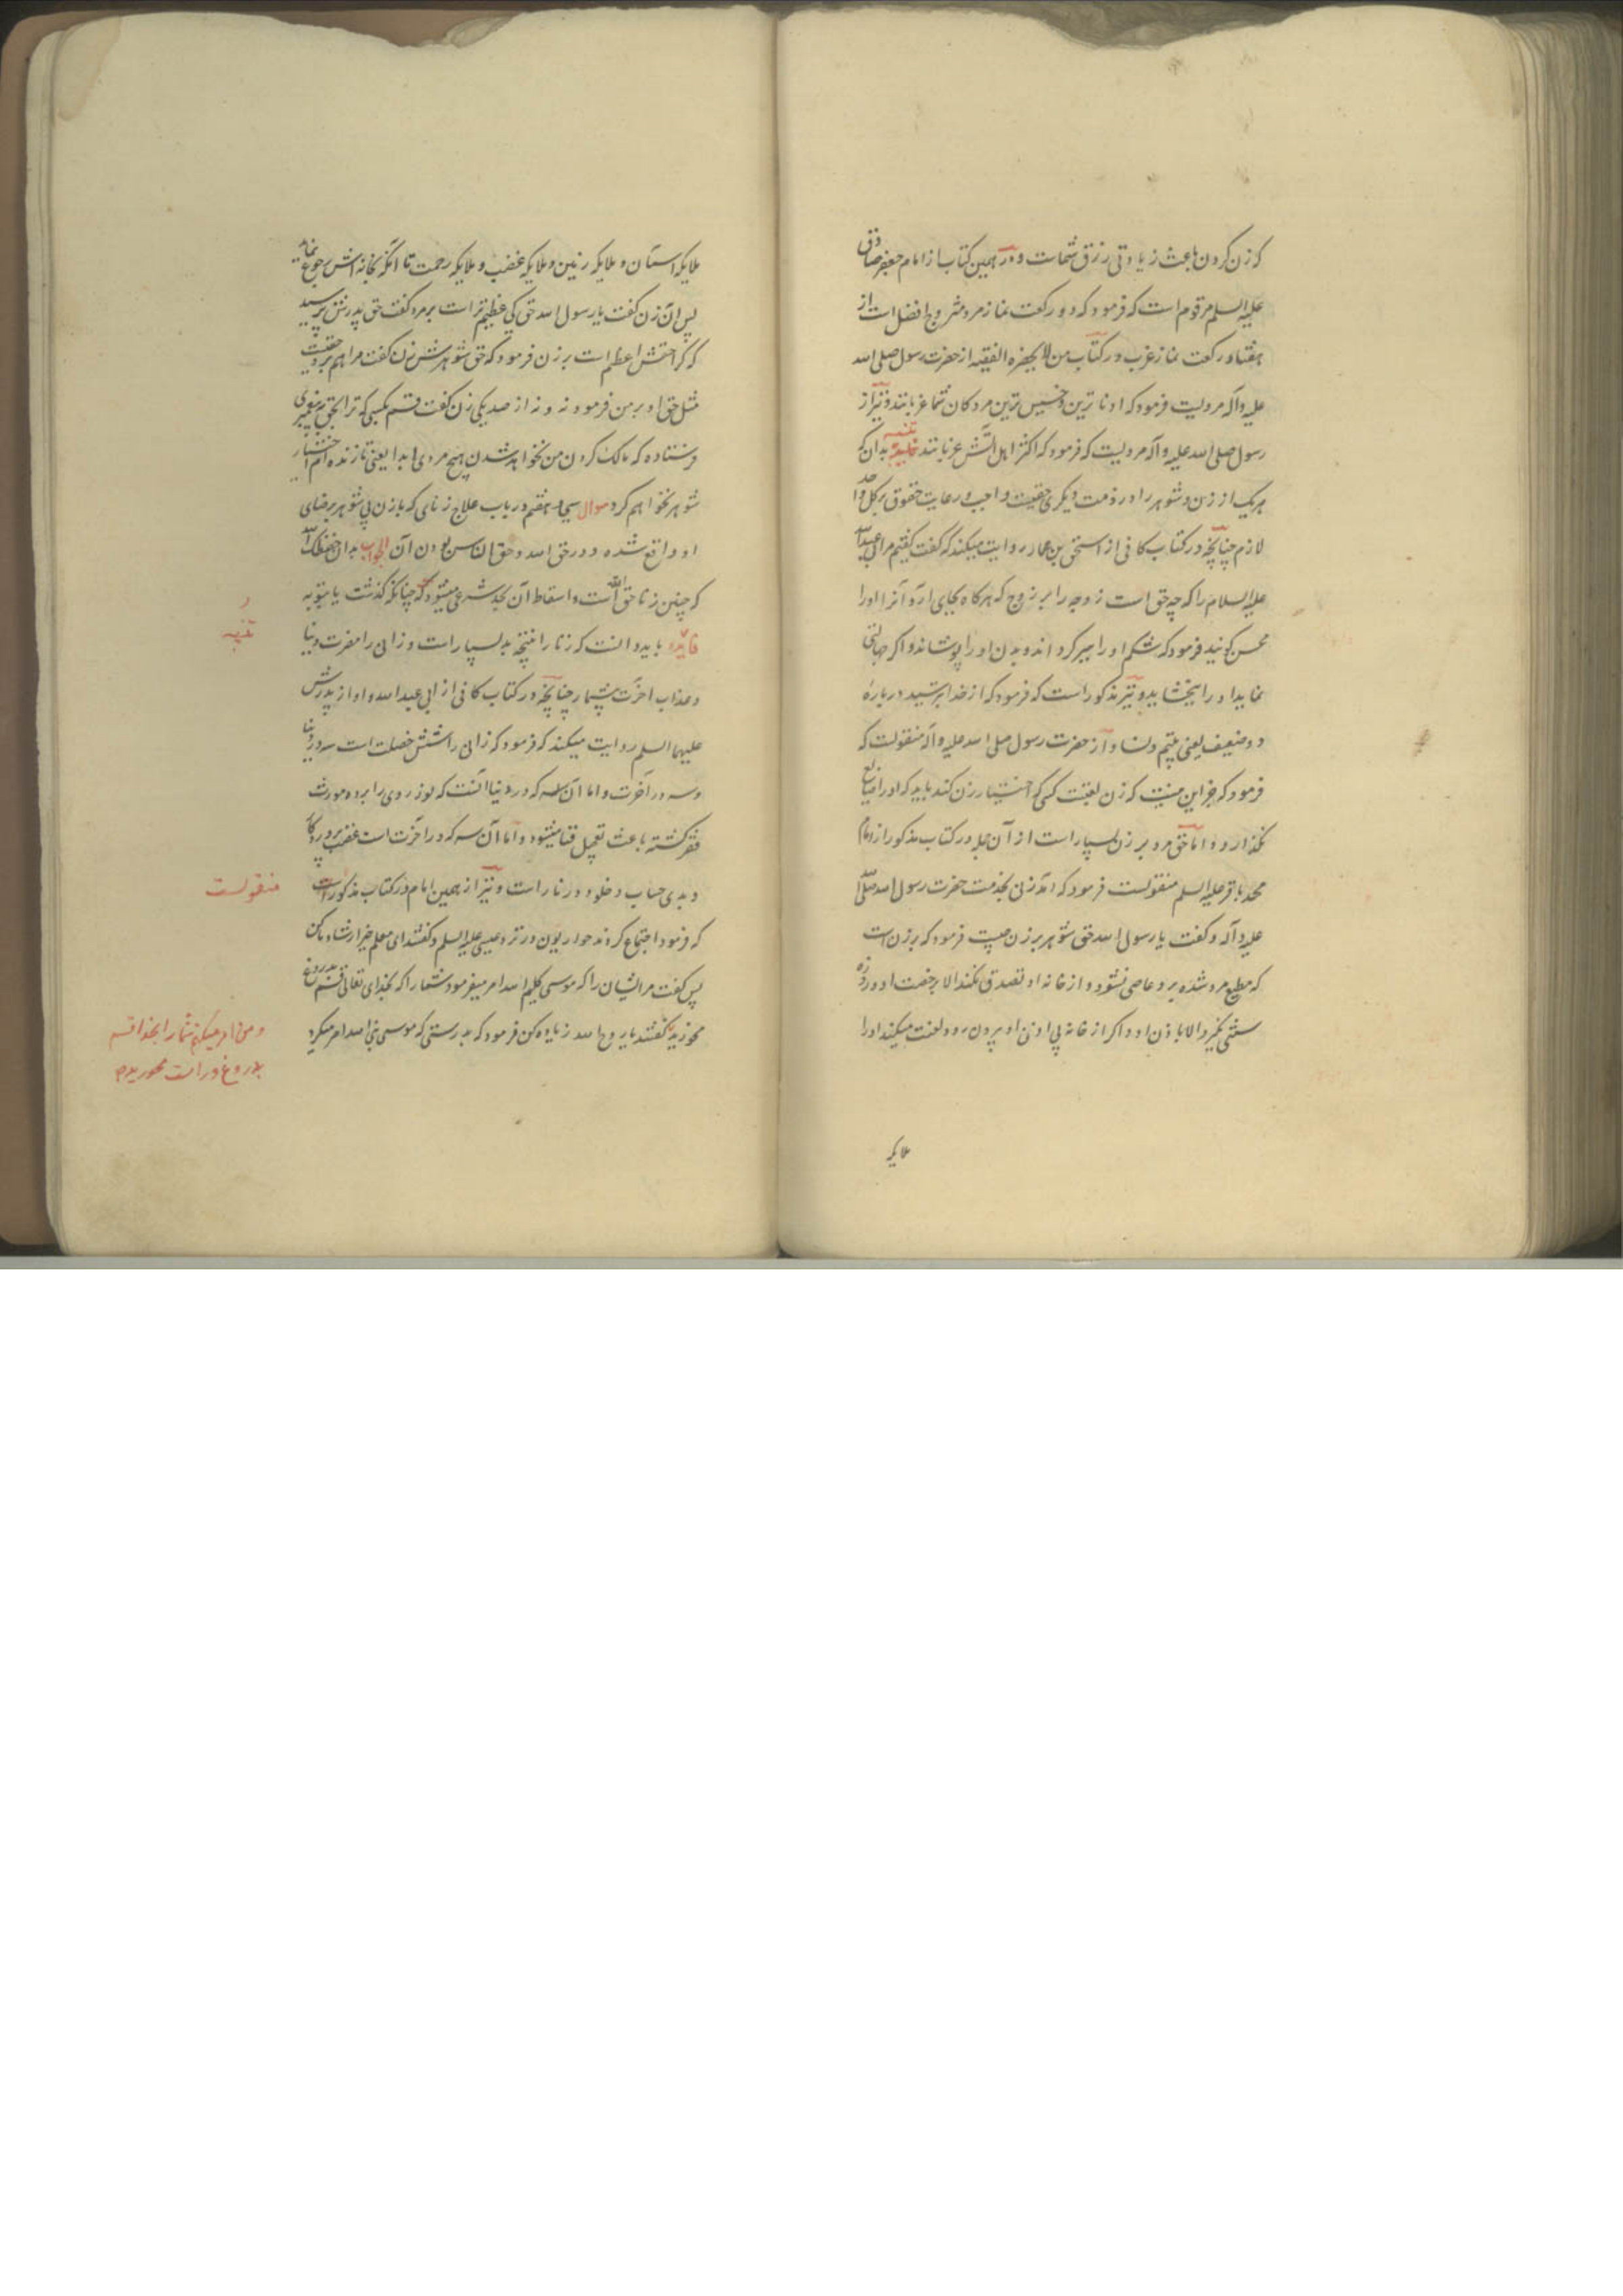 که زن کردن باعث زیادتی رزق شماست و در همین کتاب از امام جعفر صادق
علیه السلم مرقوم است که فرمود که دو رکعت نماز مرد متزوج افضل است از
هفتاد رکعت نماز عزب و در کتاب من لا یحضره الفقیه از حضرت رسول صلی الله
علیه وآله مرویست فرمود که ادنا ترین و خسیس ترین مردکان شما عزبانند و نیز از
رسول صلی الله علیه وآله مرویست که فرمود که اکثر اهل آتش عزبانند تنبیه بدان که
هر یک از زن و شوهر را در ذمت دیگری حقیست واجب و رعایت حقوق بر کل واحد
لازم چنانچه در کتاب کافی از اسحق بن عمار روایت میکند که گفت گفتم مر ابی عبدالله
علیه السلام را که چه حق است زوجه را بر زوج که هرگاه بجای آرد آنرا او را
محسن گویند فرمود که شکم او را سیر کرداند و بدن او را بپوشاند و اگر جهالتی
نماید او را ببخشاید و نیز مذکور است که فرمود که از خدا بترسید در بارهٔ
دو ضعیف یعنی یتیم و نسا و از حضرت رسول صلی الله علیه وآله منقولست که
فرمود که جز این نیست که زن لعبتست کسی که اختیار زن کند باید که او را ضایع
نگذارد و اما حق مرد بر زن بسیار است از آن جمله در کتاب مذکور از امام
محمد باقر علیه السلم منقولست فرمود که آمد زنی بخدمت حضرت رسول الله صلی
علیه وآله و گفت یا رسول الله حق شوهر بر زن چیست فرمود که بر زن است
که مطیع مرد شده برو عاصی نشود و از خانه او تصدق نکند الا برخصت او و روزه
سنتی نگیرد الا باذن او و اگر از خانه بی اذن او بیرون رود لعنت میکند او را
ملایکه
ملایکه آسمان و ملایکه زمین و ملایکه غضب و ملایکه رحمت تا آنکه بخانه اش رجوع نماید
پس آن زن گفت یا رسول الله حق کی عظیم تر است بر مرد گفت حق پدرش پرسید
که کرا حقش اعظم است بر زن فرمود که حق شوهرش زن گفت مرا هم برو حقیست
مثل حق او بر من فرمود نه و نه از صد یکی زن گفت قسم بکسی که ترا بحق به پیغمبری
فرستاده که مالک کردن من نخواهد شدن هیچ مردی ابدا یعنی تا زنده ام اختیار
شوهر نخواهم کرد سوال سیم و هفتم در باب علاج زنای که با زن بی شوهر برضای
او واقع شده و در حق الله و حق الناس بودن آن الجواب بدان حفظک الله
که چنین زنا حق الله است و اسقاط آن بحد شرعی میشود که چنانکه گذشت یا بتوبه
فایده باید دانست که زنا را نتیجه بد بسیار است و زانی را مضرت دنیا
و عذاب اخرت بیشمار چنانچه در کتاب کافی از ابی عبدالله و او از پدرش
علیهما السلم روایت میکند که فرمود که زانی را شش خصلت است سه در دنیا
و سه در آخرت و اما آن سه که در دنیا آنست که نور روی را برده مورث
فقر گشته باعث تعجیل فنا میشود و اما آن سه که در اخرت است غضب پروردگار
و بدی حساب و خلود در نار است و نیز از همین امام در کتاب مذکور است
که فرمود اجتماع کردند حواریون در نزد عیسی علیه السلم و گفتند ای معلم خیر ارشاد ما کن
پس گفت مر ایشان را که موسی کلیم الله امر میفرمود شما را که بخدای تعالی قسم بدروغ
مخورید گفتند یا روح الله زیاده کن فرمود که بدرستی که موسی نبی الله امر میکرد
تنبیه
منقولست
و من امر میکنم شما را بخدا قسم
بدروغ و راست مخورید